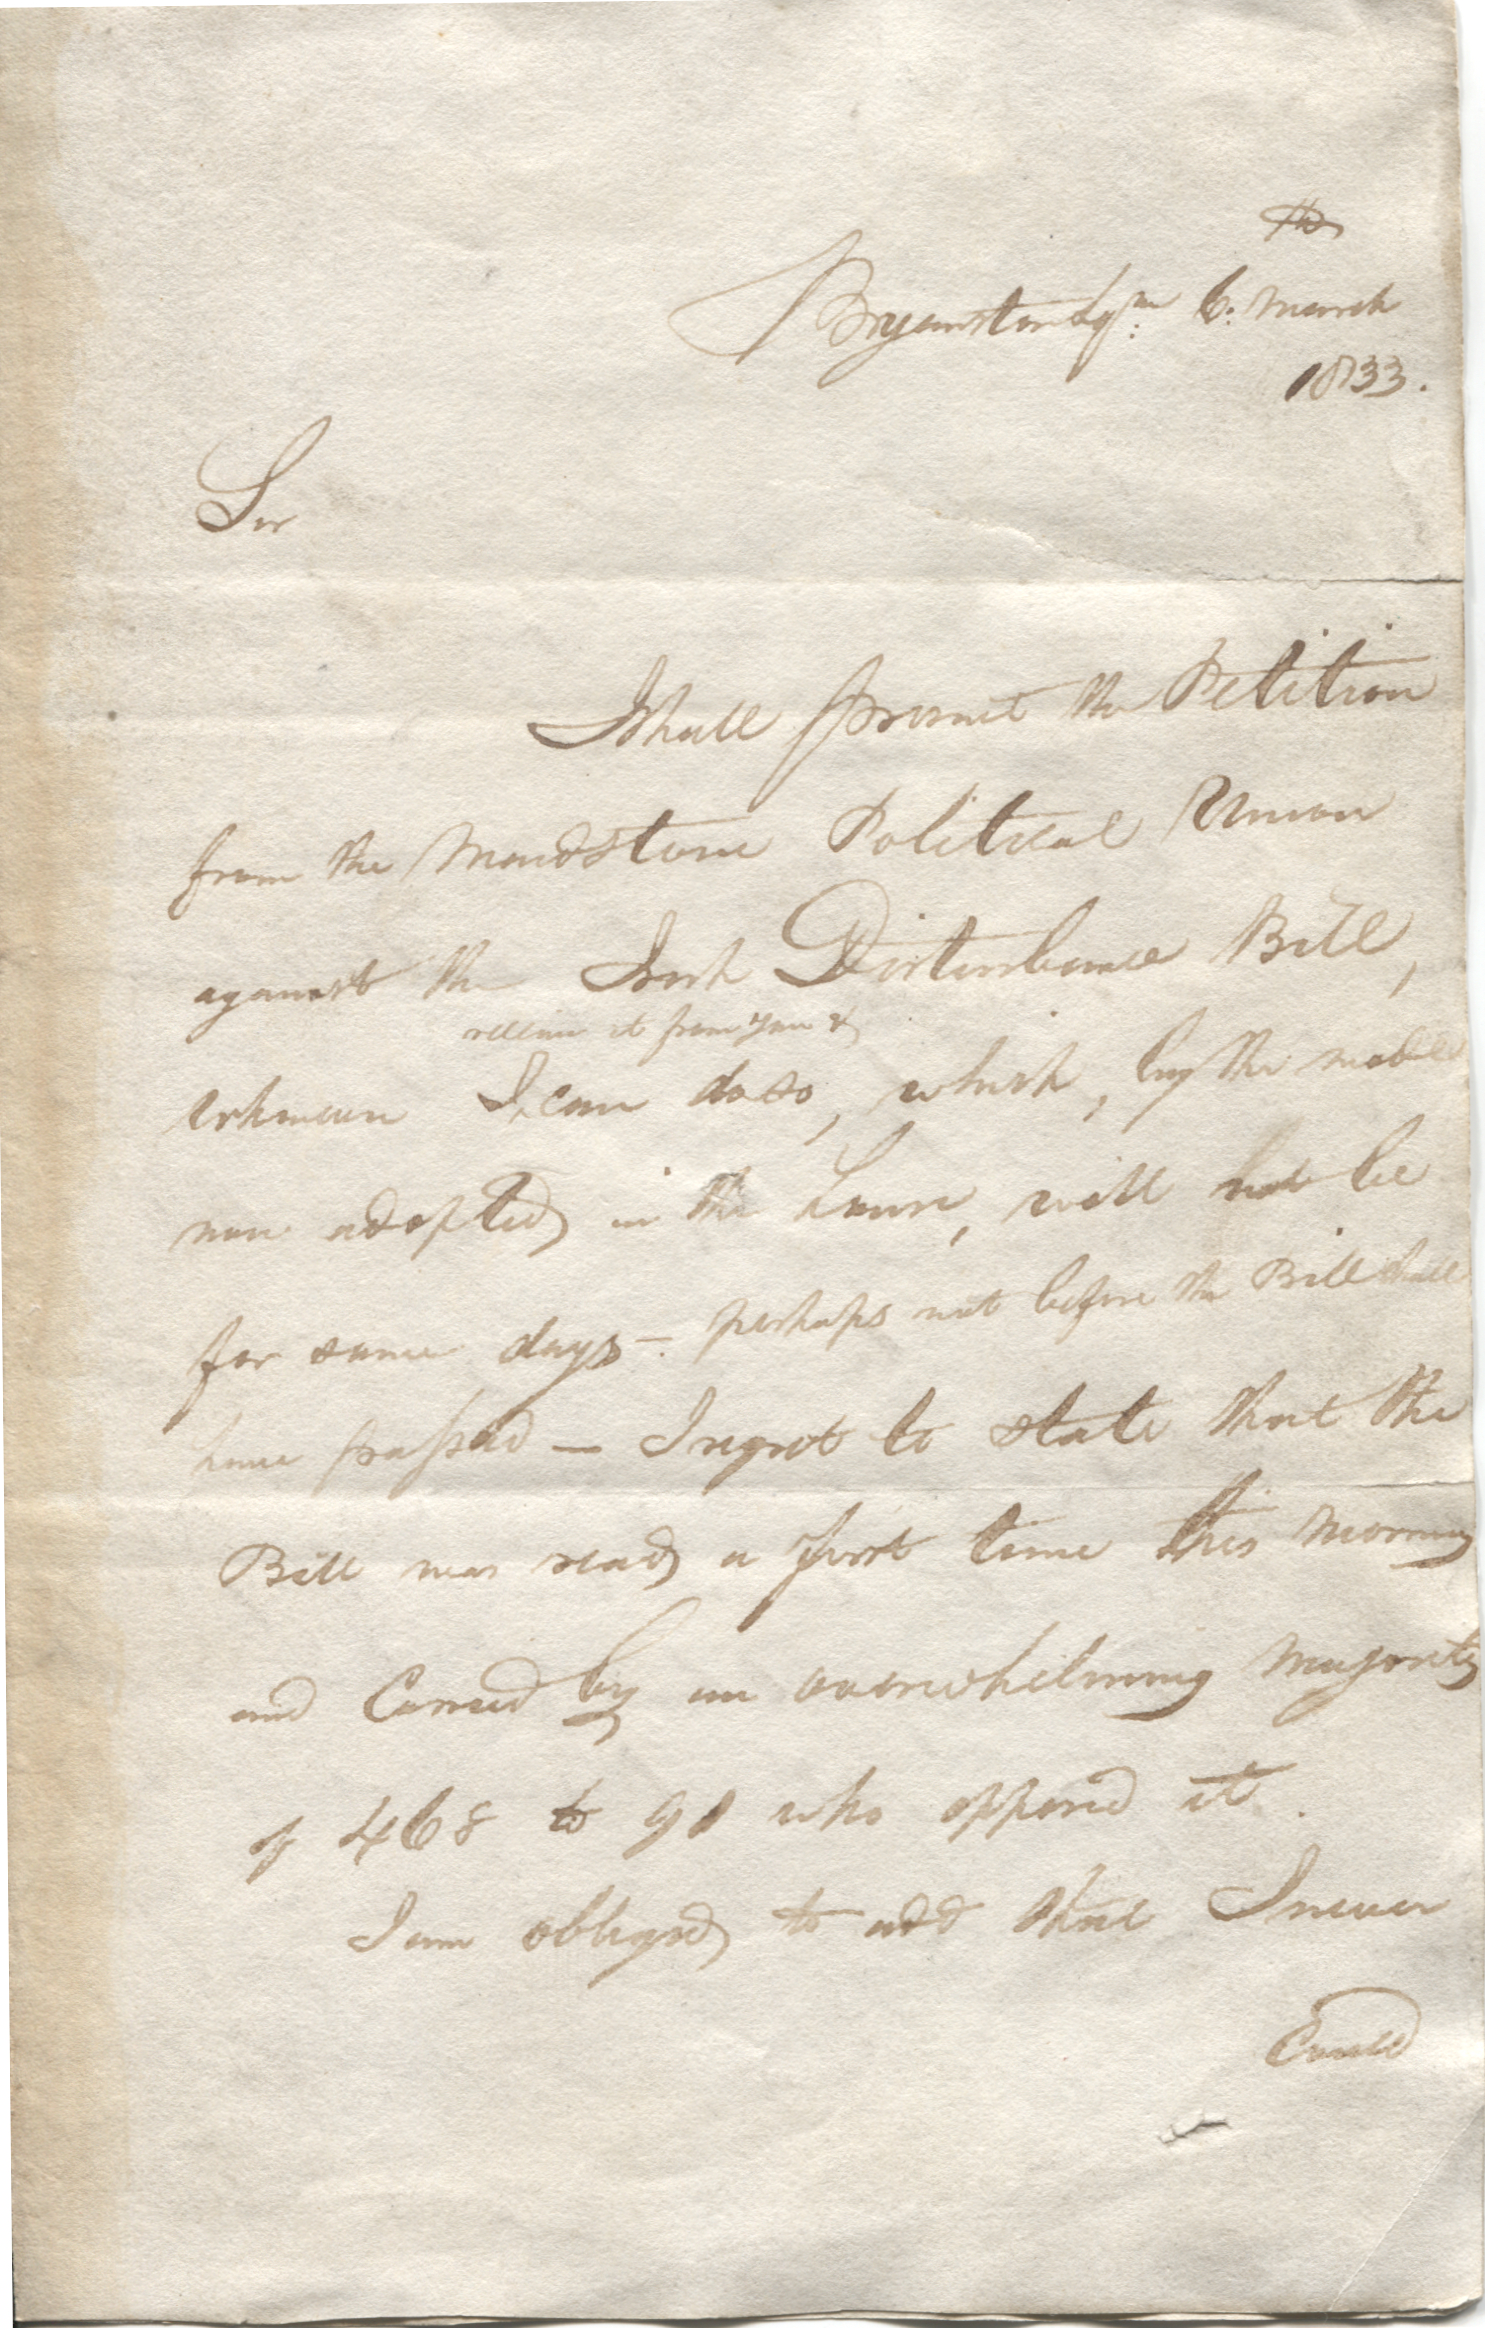 Bryanston Sqre 6th March
1833.
Sir
I shall present the Petition
from the Maidstone Political Union
against the Irish Disturbance Bill,
receive it from you &
whenever I can do so, which, by the mode
now adopted in the House, will not be
for some days – perhaps not before the Bill shall
have passed — I regret to state that the
Bill was read a first time this morning
and Carried by an overwhelming majority
of 468 to 90 who opposed it.
I am obliged to add that I never